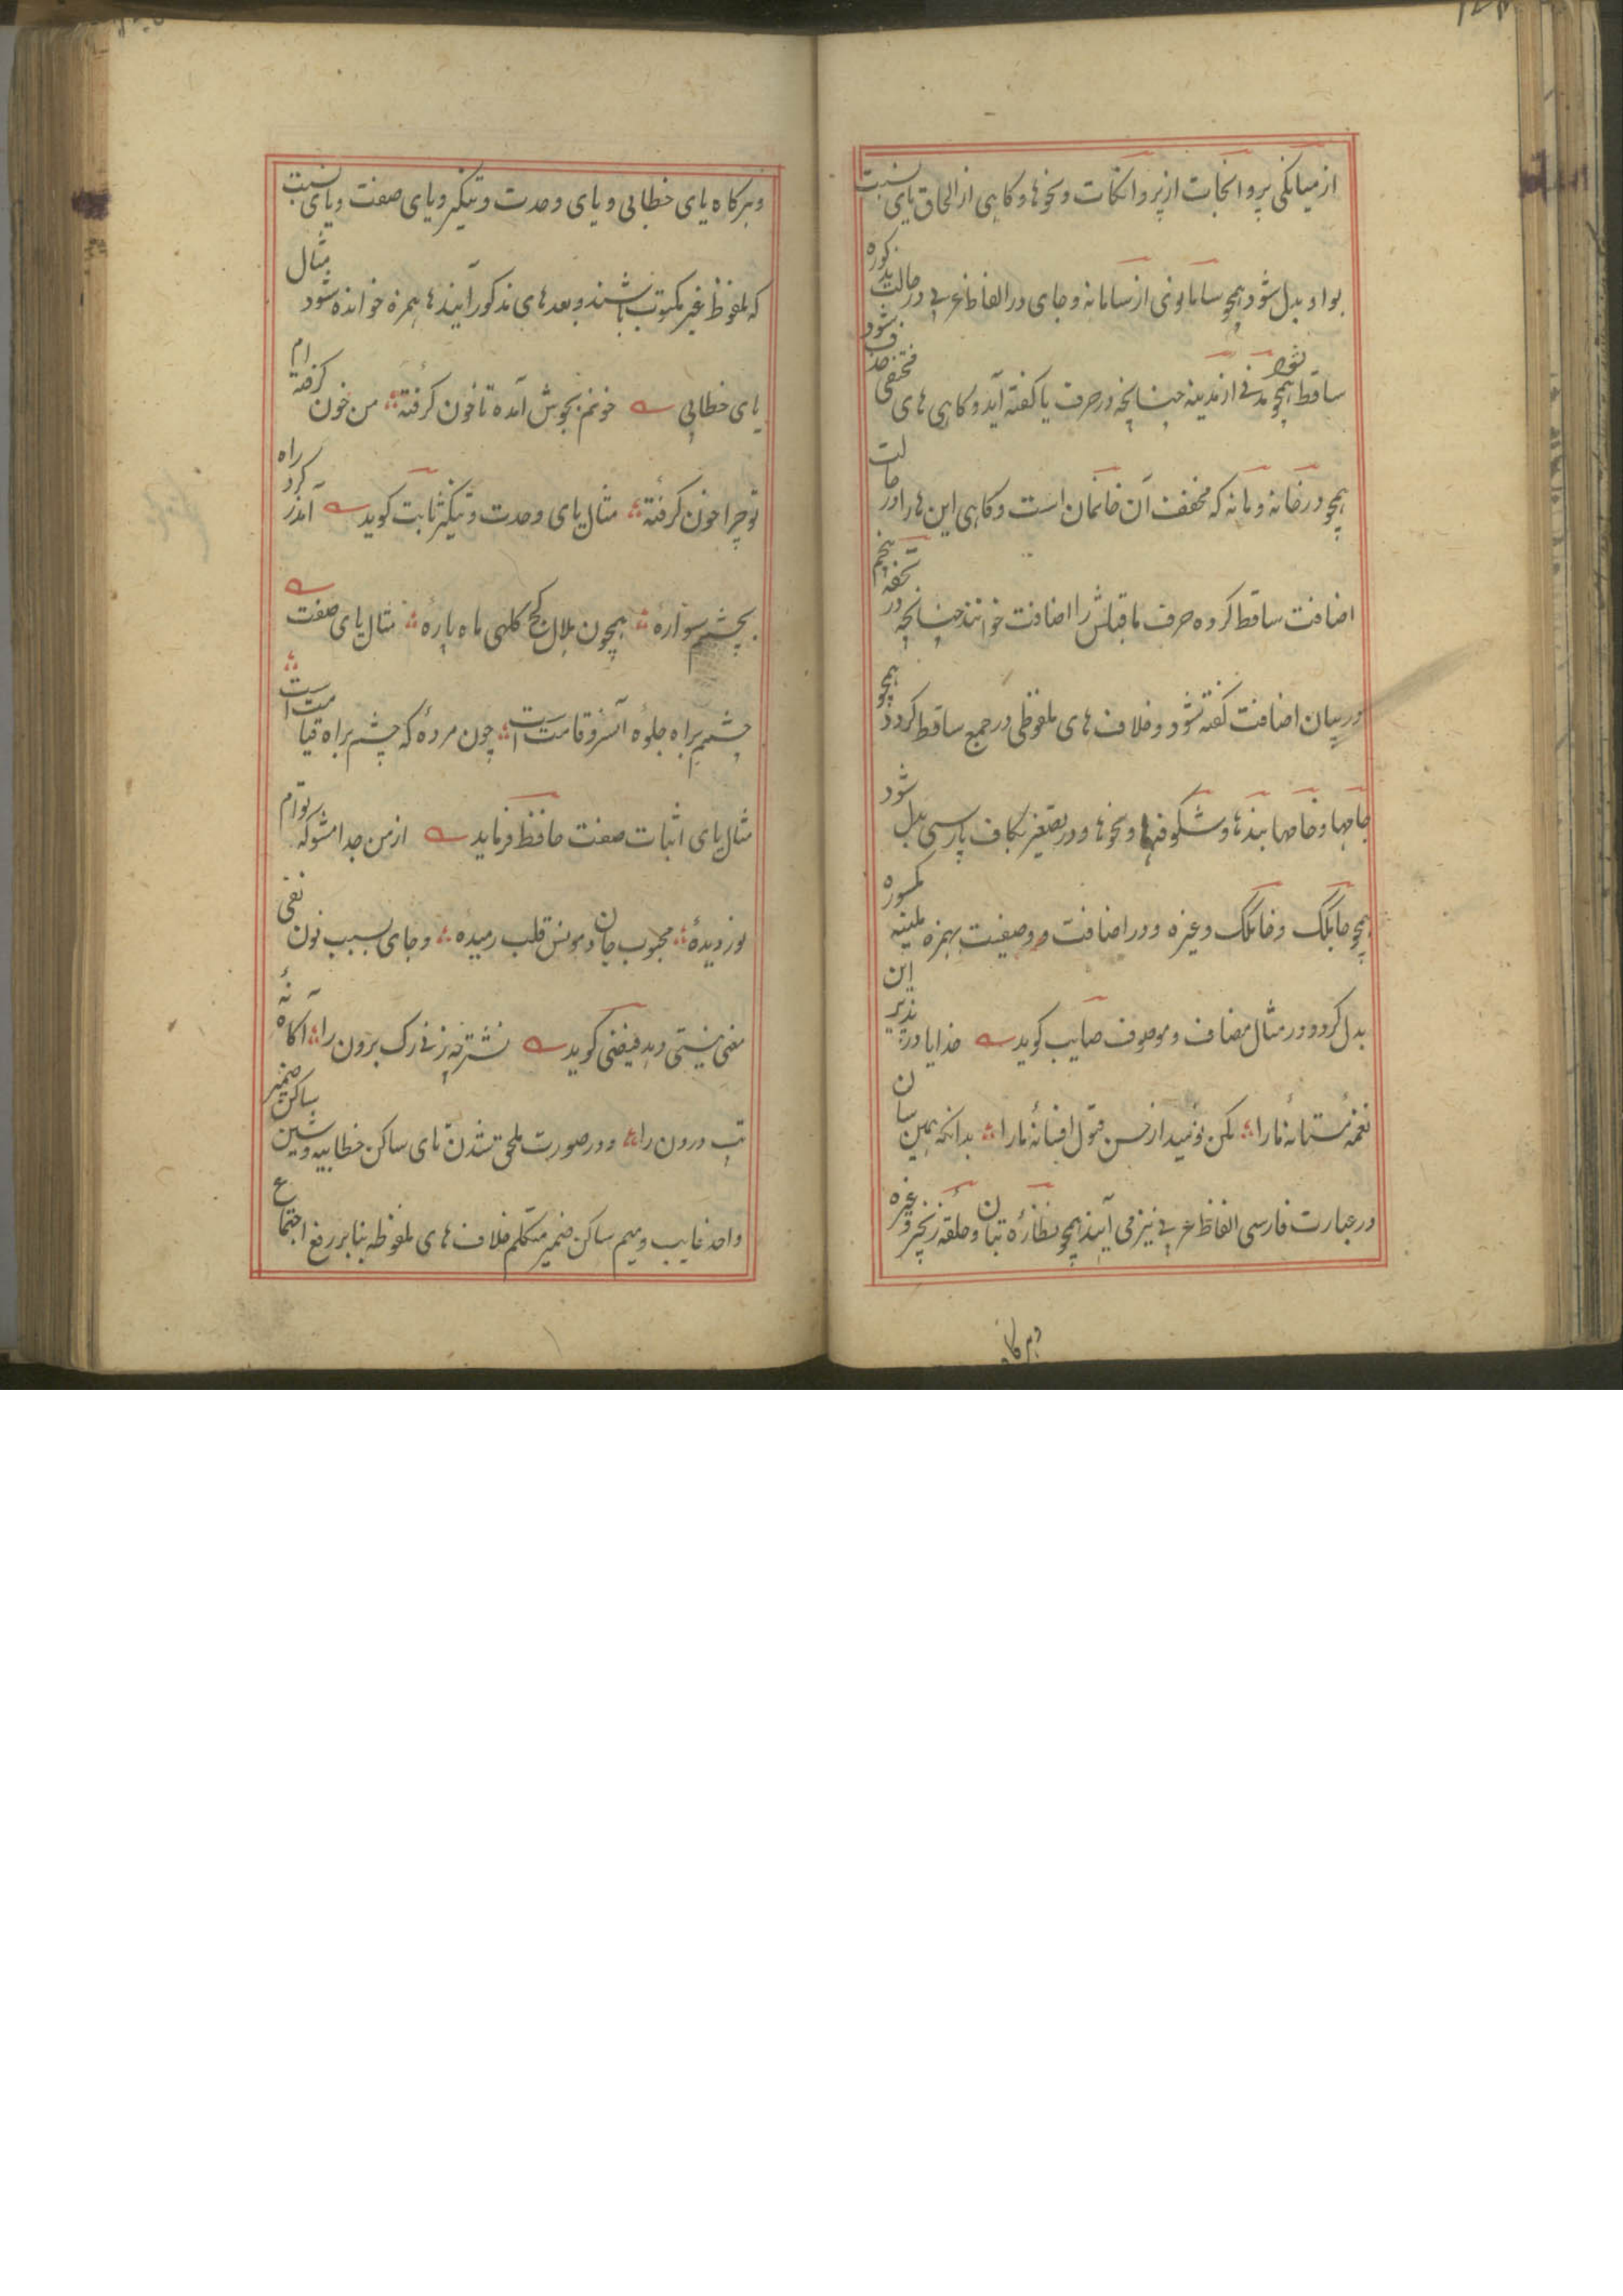 از میانگی پروانجات از پروانکات و نحوها و کاهی از الحاق یای نسبت
بواو بدل شود همچو سامانوئی از سامانه و جای در الفاظ عربی در حالت
ساقط شود همچو مدنی از مدینه چنانچه در حرف یا کفته آید و کاهی های مختفی حذف شود
همچو در خانه و مانه که مخفف آن خانمان است و کاهی این ها را در حالت
اضافت ساقط کرده حرف ماقبلش را اضافت خوانند چنانچه در تحفه
در بیان اضافت کفته شود و خلاف های ملفوظی در جمع ساقط کردد همچو
جامها و خامها بندها و شکوفها و نحوها و در تصغیر بکاف پارسی بدل شود
همچو جامکک و خانکک و غیره و در اضافت و وصفیت بهمزه ملینه مکسوره
بدل کردد و در مثال مضاف و موصوف صایب کوید خدایا در پذیر این
نغمه مستانهٔ ما را مکن نومید از حسن قبول افسانهٔ ما را بدانکه همین سان
در عبارت فارسی الفاظ عربی نیز می آیند همچو نظارهٔ بتان و حلقهٔ زنجیر و غیره
وهرکاه
و هرکاه یای خطابی و یای وحدت و تنکیر و یای صفت و یای نسبت
که ملفوظ غیر مکتوب باشند و بعد های مذکور آیند ها بهمزه خوانده شود مثال
یای خطابی خونم بجوش آمده تا خون کرفتهٔ من خون کرفته ام
تو چرا خون کرفتهٔ مثال یای وحدت و تنکیر ثابت کوید آمد ز کرد راه
بچشمم سوارهٔ همچون هلال کج کلهی ماه پارهٔ مثال یای صفت
چشمم براه جلوه آن سرو قامت است چون مردهٔ که چشم براه قیامت است
مثال یای اثبات صفت حافظ فرماید از من جدا مشو که توام
نور دیدهٔ محبوب جان و مونس قلب رمیده و جای بسبب نون نفی
معنی نیستی دهد فیضی کوید نشتر چه زنی رک برون را آکاه نهٔ
تب درون را و در صورت ملحق شدن تای ساکن خطابیه و شین ساکن ضمیر
واحد غایب و میم ساکن ضمیر متکلم خلاف های ملفوظه بنابر رفع اجتماع